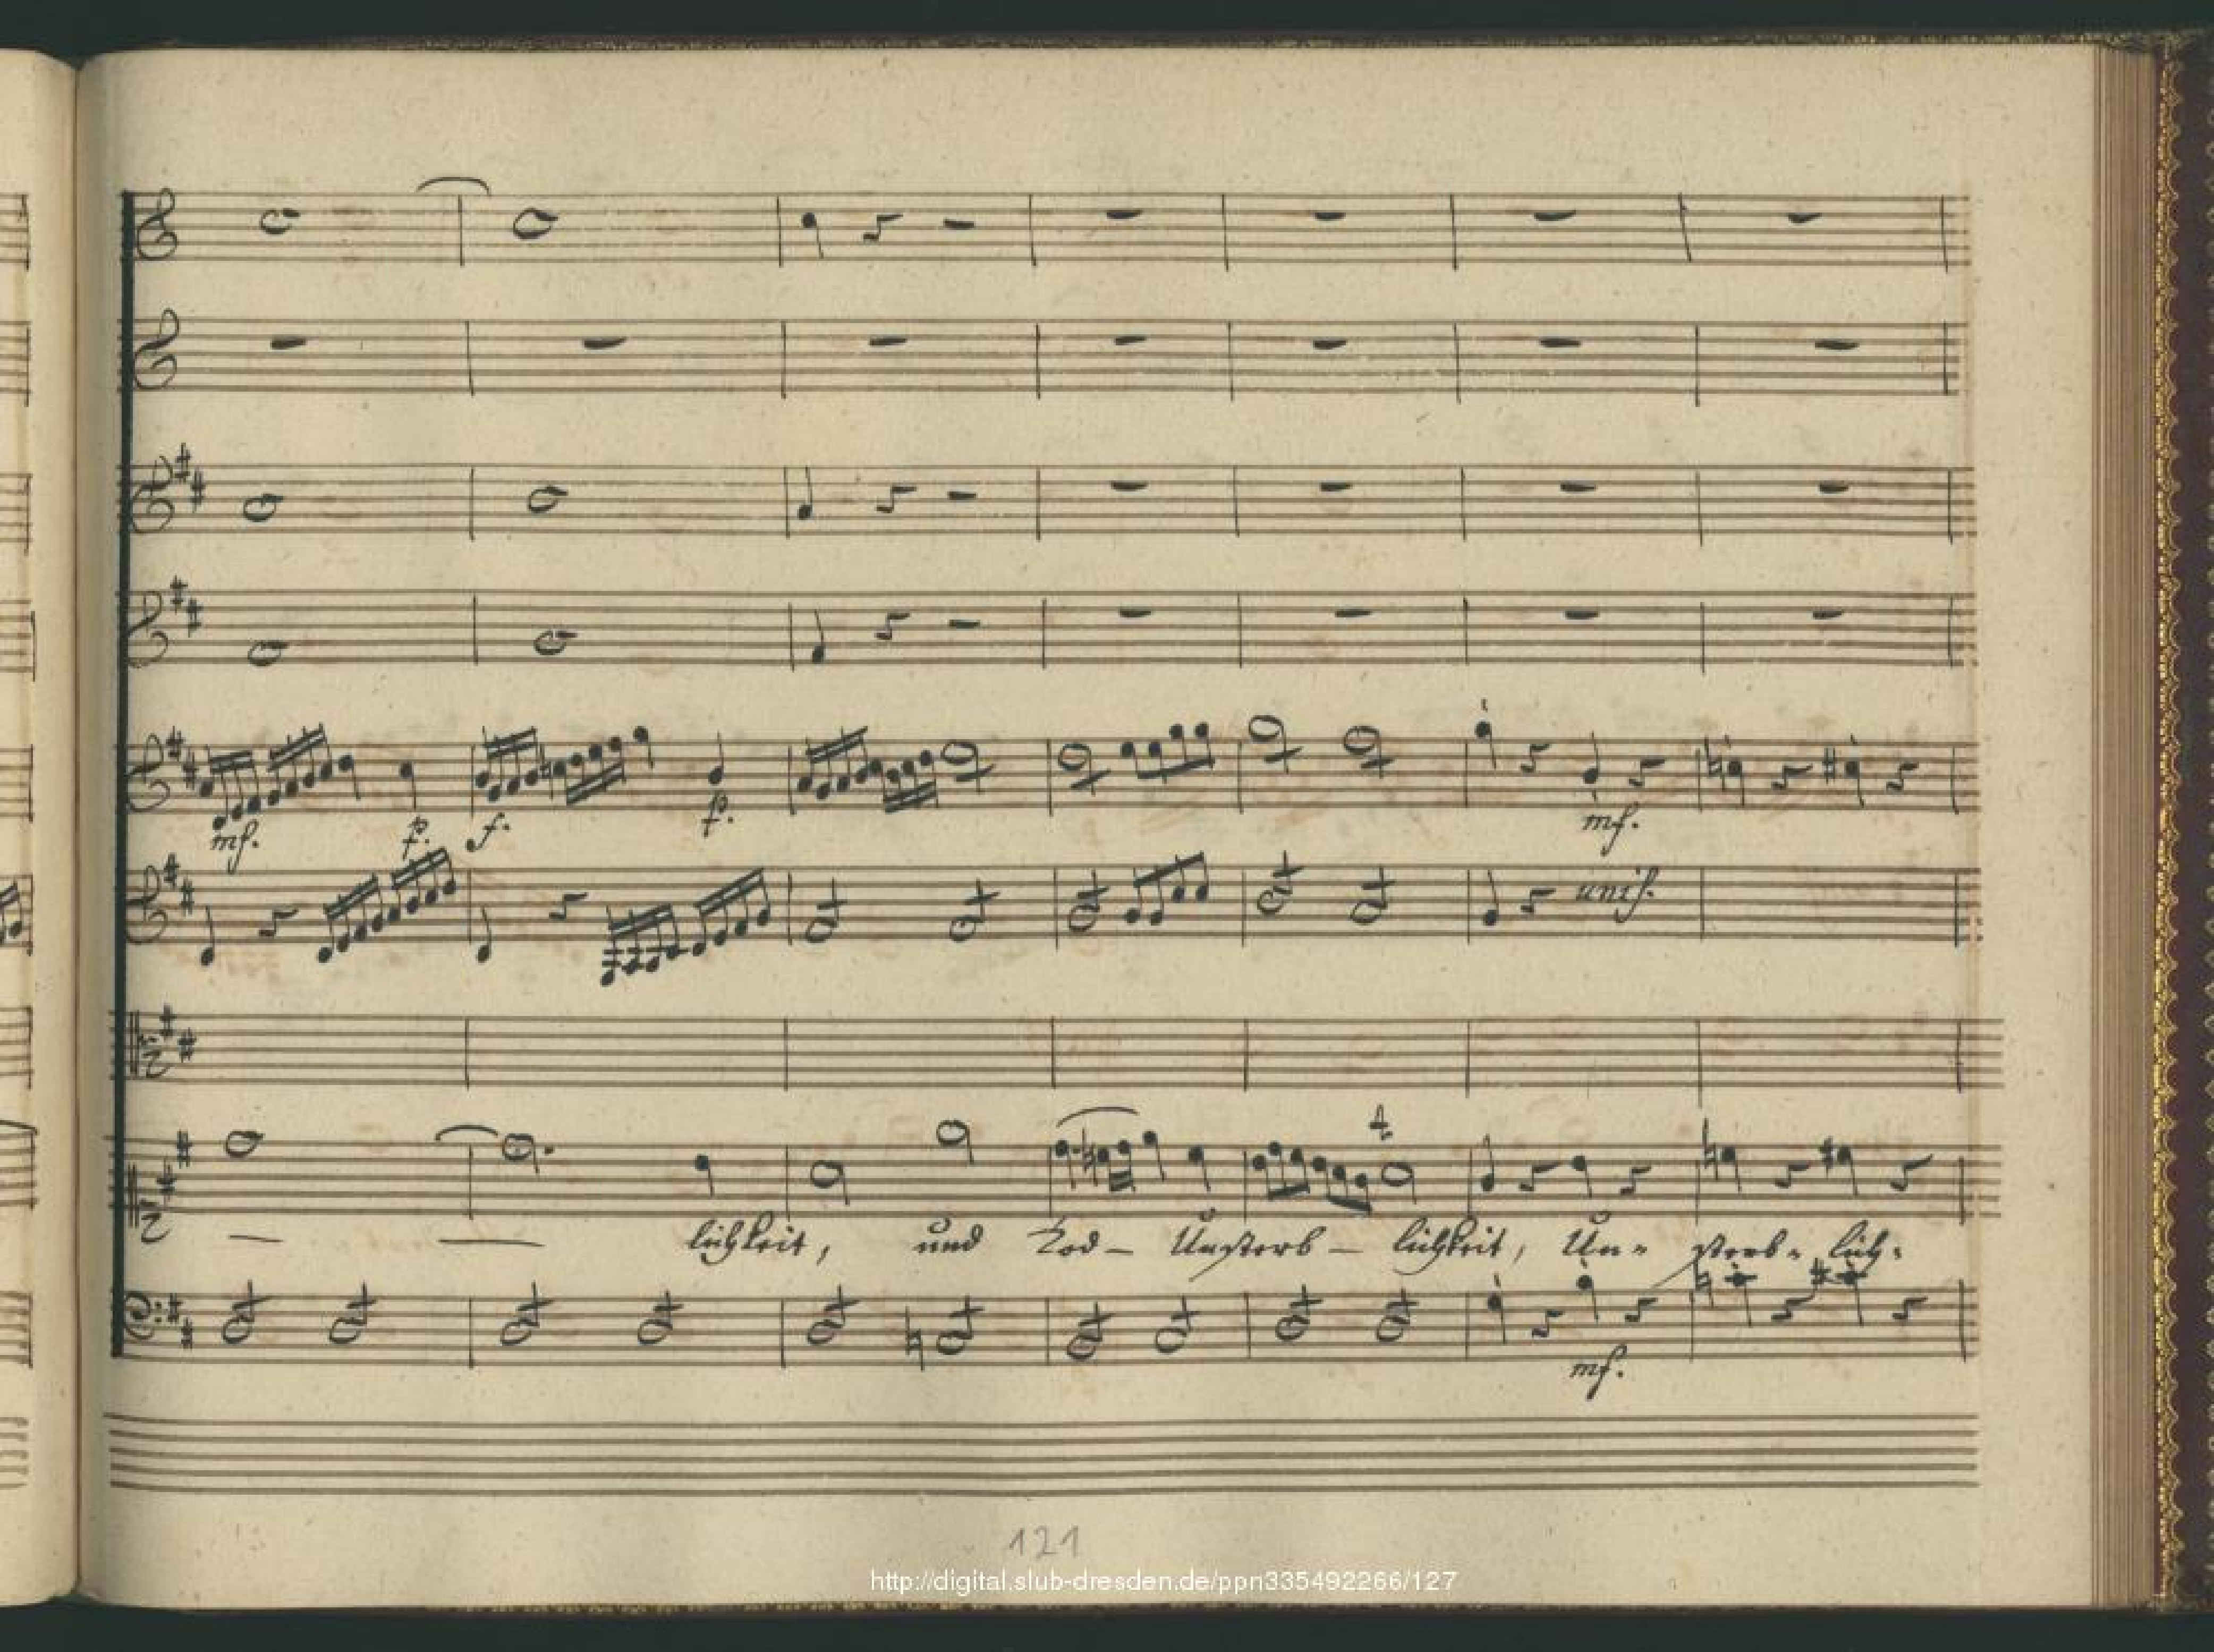 mf. p. f. p. mf.
unis.
lichkeit, und Tod- Unsterb- lichkeit, Un- sterb- lich-
mf.
121
http://digital.slub-dresden.de/ppn335492266/127